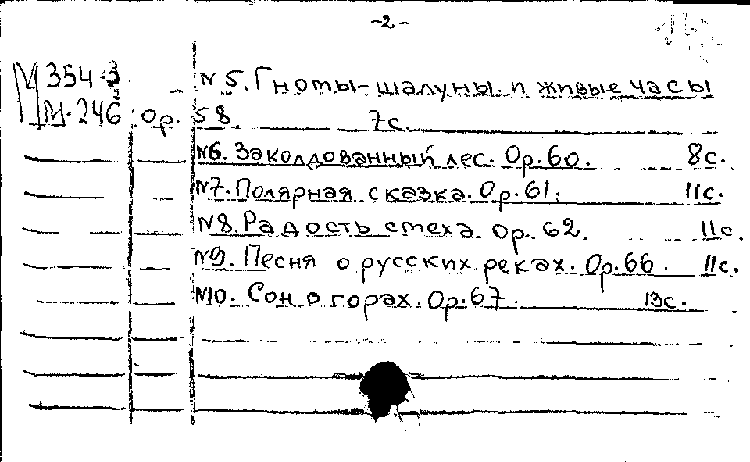 -2-
М 354-3
№5. Гномы-шалуны и живые часы
М.246
Ор. 58. 7с.
№6. Заколдованный лес. Ор.60. 8с.
№7. Полярная сказка. Ор.61. 11с.
№8. Радость смеха. Ор.62. 11с.
№9. Песня о русских реках. Ор.66. 11с.
№10. Сон о горах. Ор.67. 13с.